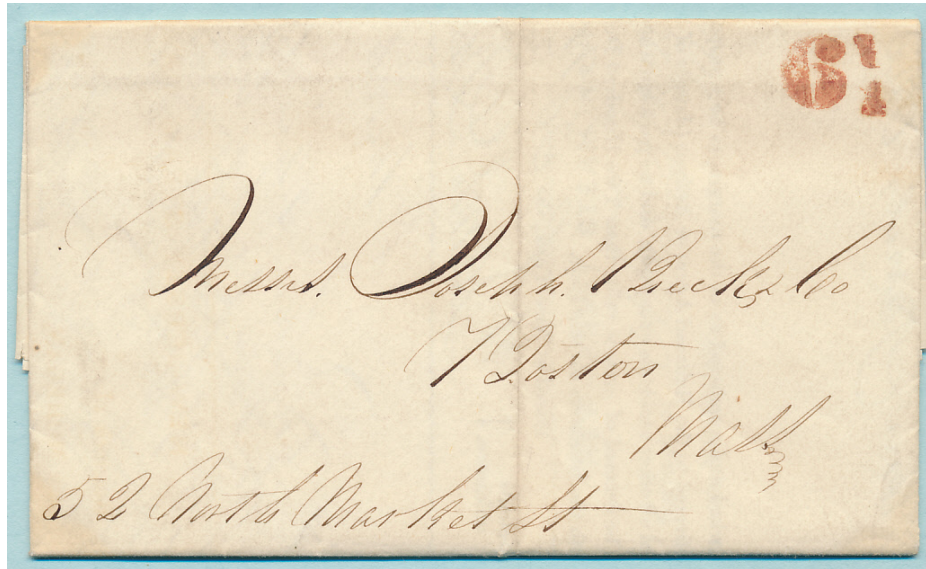 6
Messrs. Joseph. Breck & Co
Boston
Mass
52 North Market St